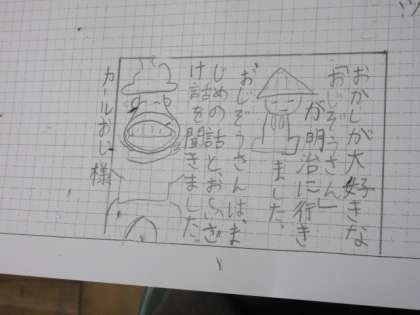 おかしが大好きな
「おじぞうさん」
が明治に行き
ました。
おじぞうさんは、ま
じめの話と、おふざ
け話を聞きました
カールおじ様